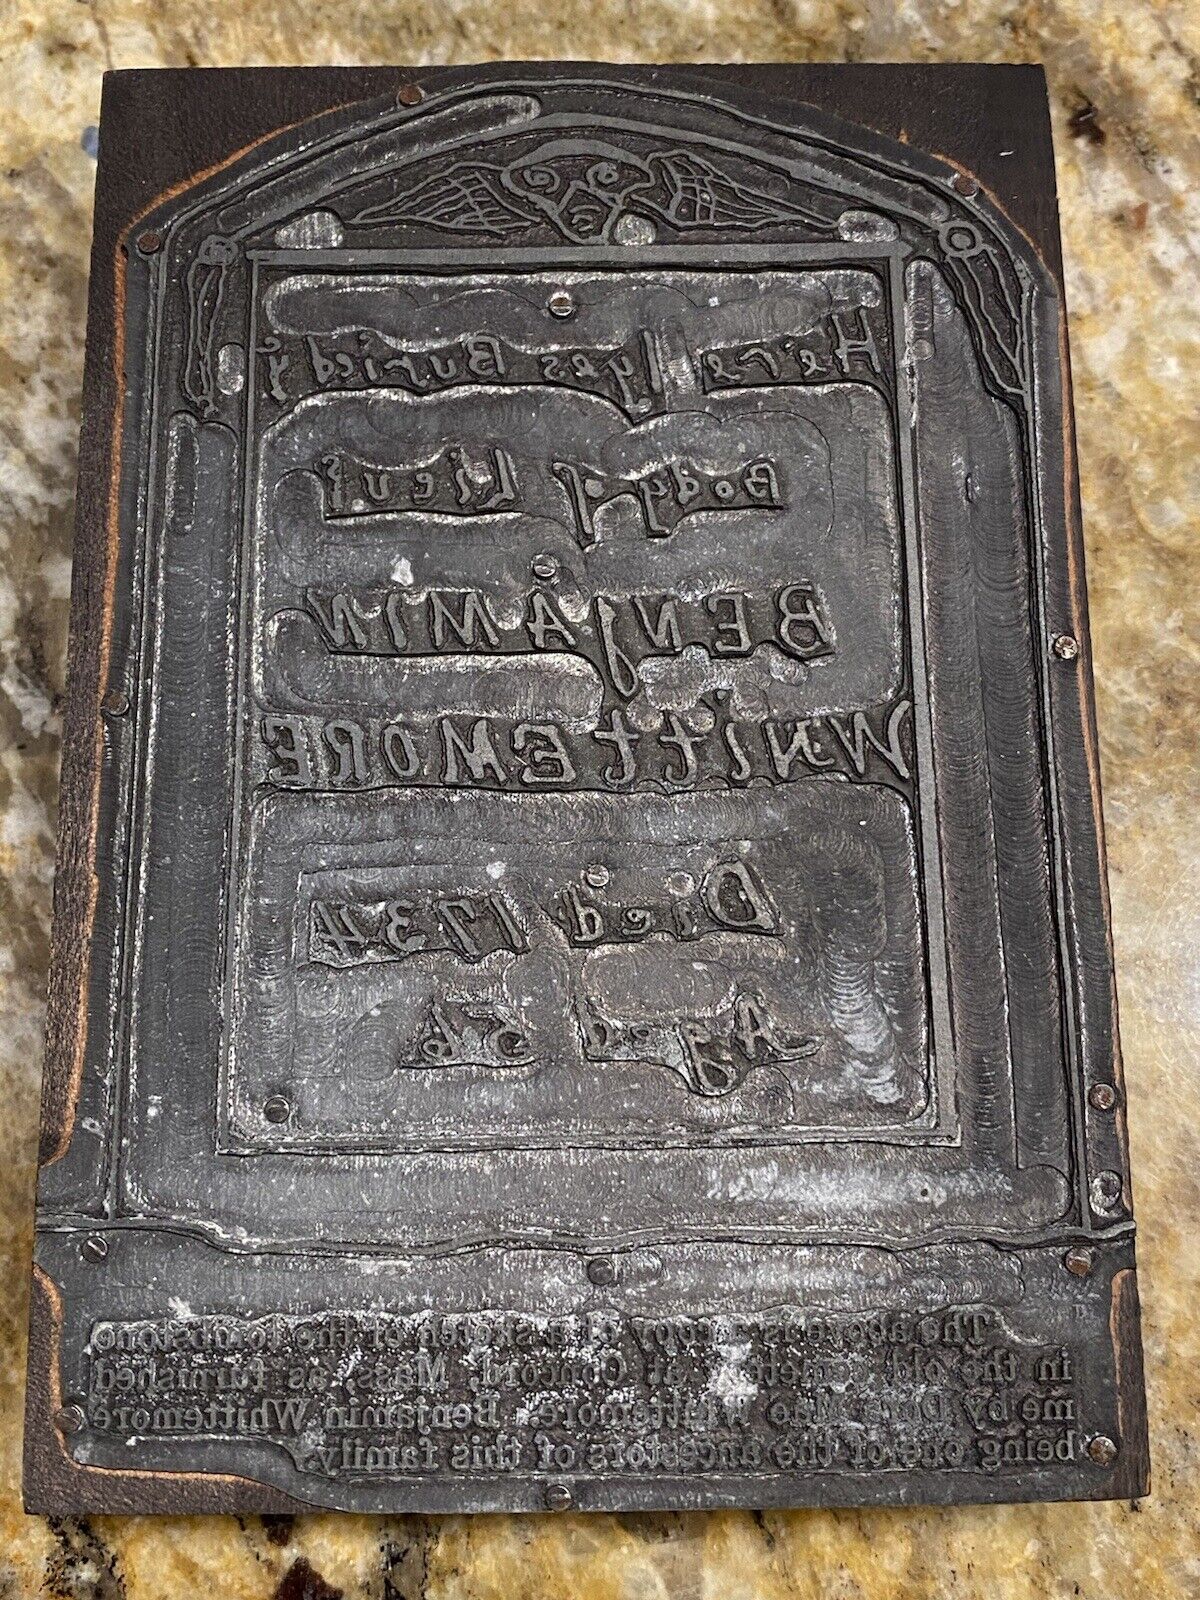 Here lyes Buried ye
Body of Lieut
BENJAMIN
WhittEMORE
Died 1734
Aged 56
The above is a copy of a sketch of the tombstone
in the old cemetery at Concord, Mass, as furnished
me by Dora Mae Whittemore. Benjamin Whittemore
being one of the ancestors of this family.